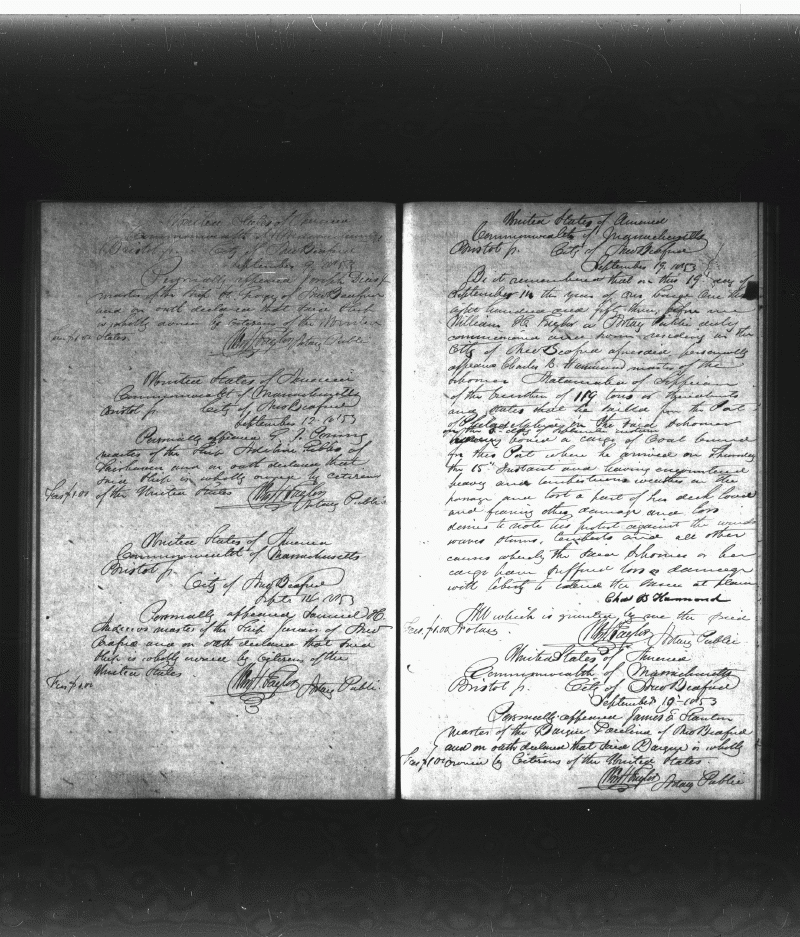 United States of America
Commonwealth of Massachusetts
Bristol ss. City of New Bedford
September 9 1853
Personally appeared Joseph
master of the Ship of New Bedford
and on oath declared that said Ship
is wholly owned by citizens of the United
Fees $1.00 States
Wm H Taylor Notary Public
United States of America
Commonwealth of Massachusetts
Bristol ss. City of New Bedford
September 12 1853
Personally appeared
master of the Ship Adeline Gibbs of
Fairhaven and on oath declared that
said Ship is wholly owned by citizens
Fees $1.00 of the United States Wm H Taylor
Notary Public
United States of America
Commonwealth of Massachusetts
Bristol ss.
City of New Bedford
Sept. 14 1853
Personally appeared Samuel H.
master of the Ship of New
Bedford and on oath declared that said
Ship is wholly owned by Citizens of the
Fees $1.00 United States
Wm H Taylor Notary Public
United States of America
Commonwealth of Massachusetts
Bristol ss. City of New Bedford
September 19, 1853
Be it remembered that on this 19th day of
September in the year of our Lord one thousand
eight hundred and fifty three, before me
William H. Taylor a Notary Public duly
commissioned and sworn residing in the
City of New Bedford aforesaid personally
appeared Charles B. Hammond master of the
Schooner of Sippican
of the burthen of 119 tons or thereabouts
and states that he sailed from the Port
of Philadelphia in the said Schooner
on the day of
having on board a cargo of Coal bound
for this Port where he arrived on Thursday
the 15th Instant and having encountered
heavy and tempestuous weather on the
passage and lost a part of his deck load
and fearing other damage and loss
desires to note his protest against the winds
waves storms, tempests and all other
causes whereby the said Schooner or her
cargo have suffered loss or damage
with liberty to extend the same at pleasure
Chas B Hammond
All which is granted by me the said
Fees $1.00 Notary
Wm H Taylor Notary Public
United States of America
Commonwealth of Massachusetts
Bristol ss. City of New Bedford
September 19 1853
Personally appeared James E. Stanton
master of the Barque of New Bedford
and on oath declared that said Barque is wholly
Fees $1.00 owned by Citizens of the United States
Wm H Taylor Notary Public